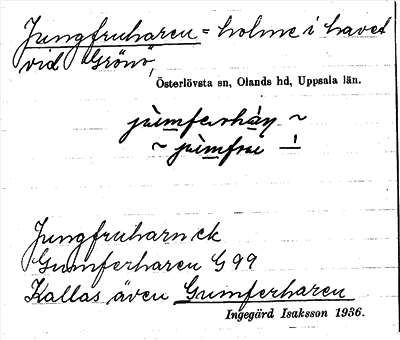 Jungfruharen = holme i havet
vid Grönö,
Österlövsta sn, Olands hd, Uppsala län.
jùmferhàn ~
~ jùmfrué –
Jungfruharn ek
Gumferharen G 99
Kallas även Gumferharen
Ingegärd Isaksson 1936.